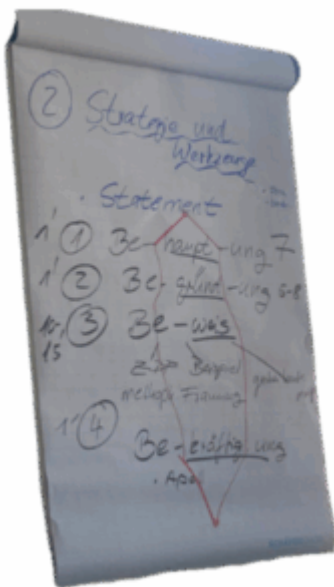 ② Strategie und
Werkzeuge
• Statement
1' ① Be-haupt-ung 7
1' ② Be-gründ-ung 6-8
③ Be-weis
15
Beispiel
Framing
1' ④
Be-kräftig ung